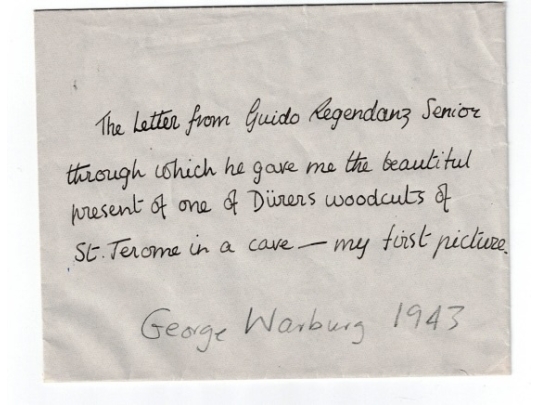 The Letter from Guido Regendanz Senior
through which he gave me the beautiful
present of one of Dürers woodcuts of
St. Jerome in a cave — my first picture.
George Warburg 1943